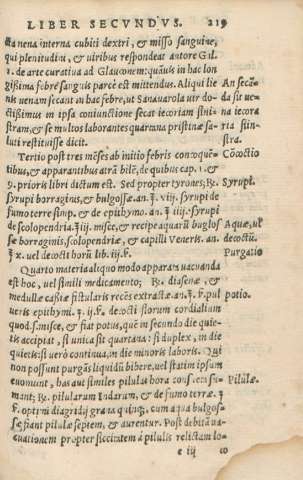 LIBER SECVNDVS. 219
cta nena interna cubiti dextri, & misso sanguine,
qui plenitudini, & uiribus respondeat autore Gil.
1. de arte curatiua ad Glauconem: quãuis in hac lon
gißima febre sanguis parcè est mittendus. Aliqui lie
nis uenam secant in hac febre, ut Sauanarola uir do-
ctißimus in ipsa coniunctione secat iecoriam sini-
stram, & se multos laborantes quartana pristinæ sa-
luti restituisse dicit.
An secã-
da sit ue-
na iecora
ria sini-
stra.
Tertio post tres mẽses ab initio febris concoquẽ-
tibus, & apparantibus atrã bilẽ, de quibus cap. 1. &
9. prioris libri dictum est. Sed propter tyrones; ℞.
syrupi borraginis, & buglossæ. an. ʒ. xiij. syrupi de
fumo terræ simp. & de epithymo. an. ʒ iiij. syrupi
de scolopendria. ʒ iij. misce, & recipe aquarũ buglos
sæ borraginis, scolopendriæ, & capilli Veneris. an.
ʒ x. uel decocti horũ lib. iij. ß.
Cõcoctio
Syrupi.
Aquæ, ul
decoctũ.
Purgatio
Quarto materia aliquo modo apparata uacuanda
est hoc, uel simili medicamento; ℞. diasenæ, &
medullæ casiæ fistularis recẽs extractæ. an. ʒ. ß. pul
ueris epithymi. ʒ. ij. decocti florum cordialium
quod s. misce, & fiat potus, quẽ in secundo die quie-
tis accipiat, si unica sit quartana: si duplex, in die
quietis: si uerò continua, in die minoris laboris. Qui
non possunt purgãs liquidũ bibere, uel statim ipsum
euomunt, has aut similes pilulas hora cons. em su-
mant; ℞. pilularum Indarum, & de fumo terræ. ʒ
ß. optimi diagridij grana quinq;, cum aqua buglos-
sæ fiant pilulæ septem, & aurentur. Post debitã ua-
cuationem propter siccitatem à pilulis relictam lo-
potio.
Pilulæ.
e iij co